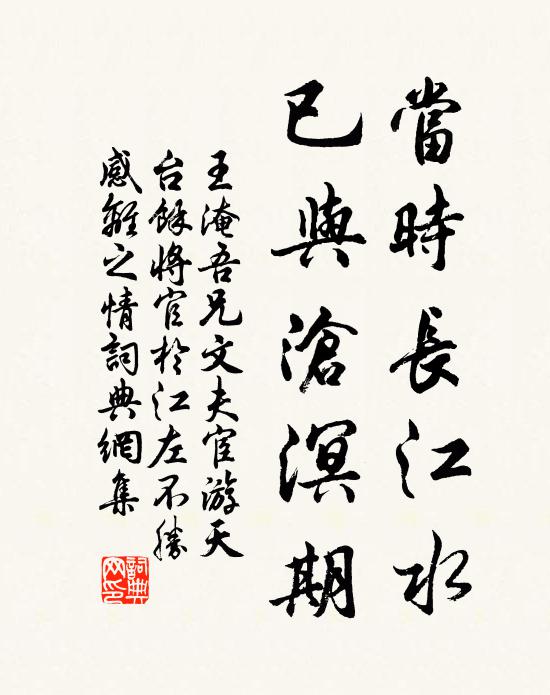 當時長江水
已與滄溟期
王淹吾兄文夫宦游天
台餘將官於江左不勝
感離之情詞典網集
詞典网印